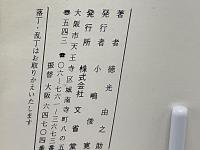 著者 徳光由之助
発行者 小嶋俊寛
発行所 株式会社 文省堂
大阪市天王寺区城南寺町八の五
☎五四三 〇六-七六一-三六七三
振替 大阪 六四七〇四番
落丁・乱丁はお取りかえいたします